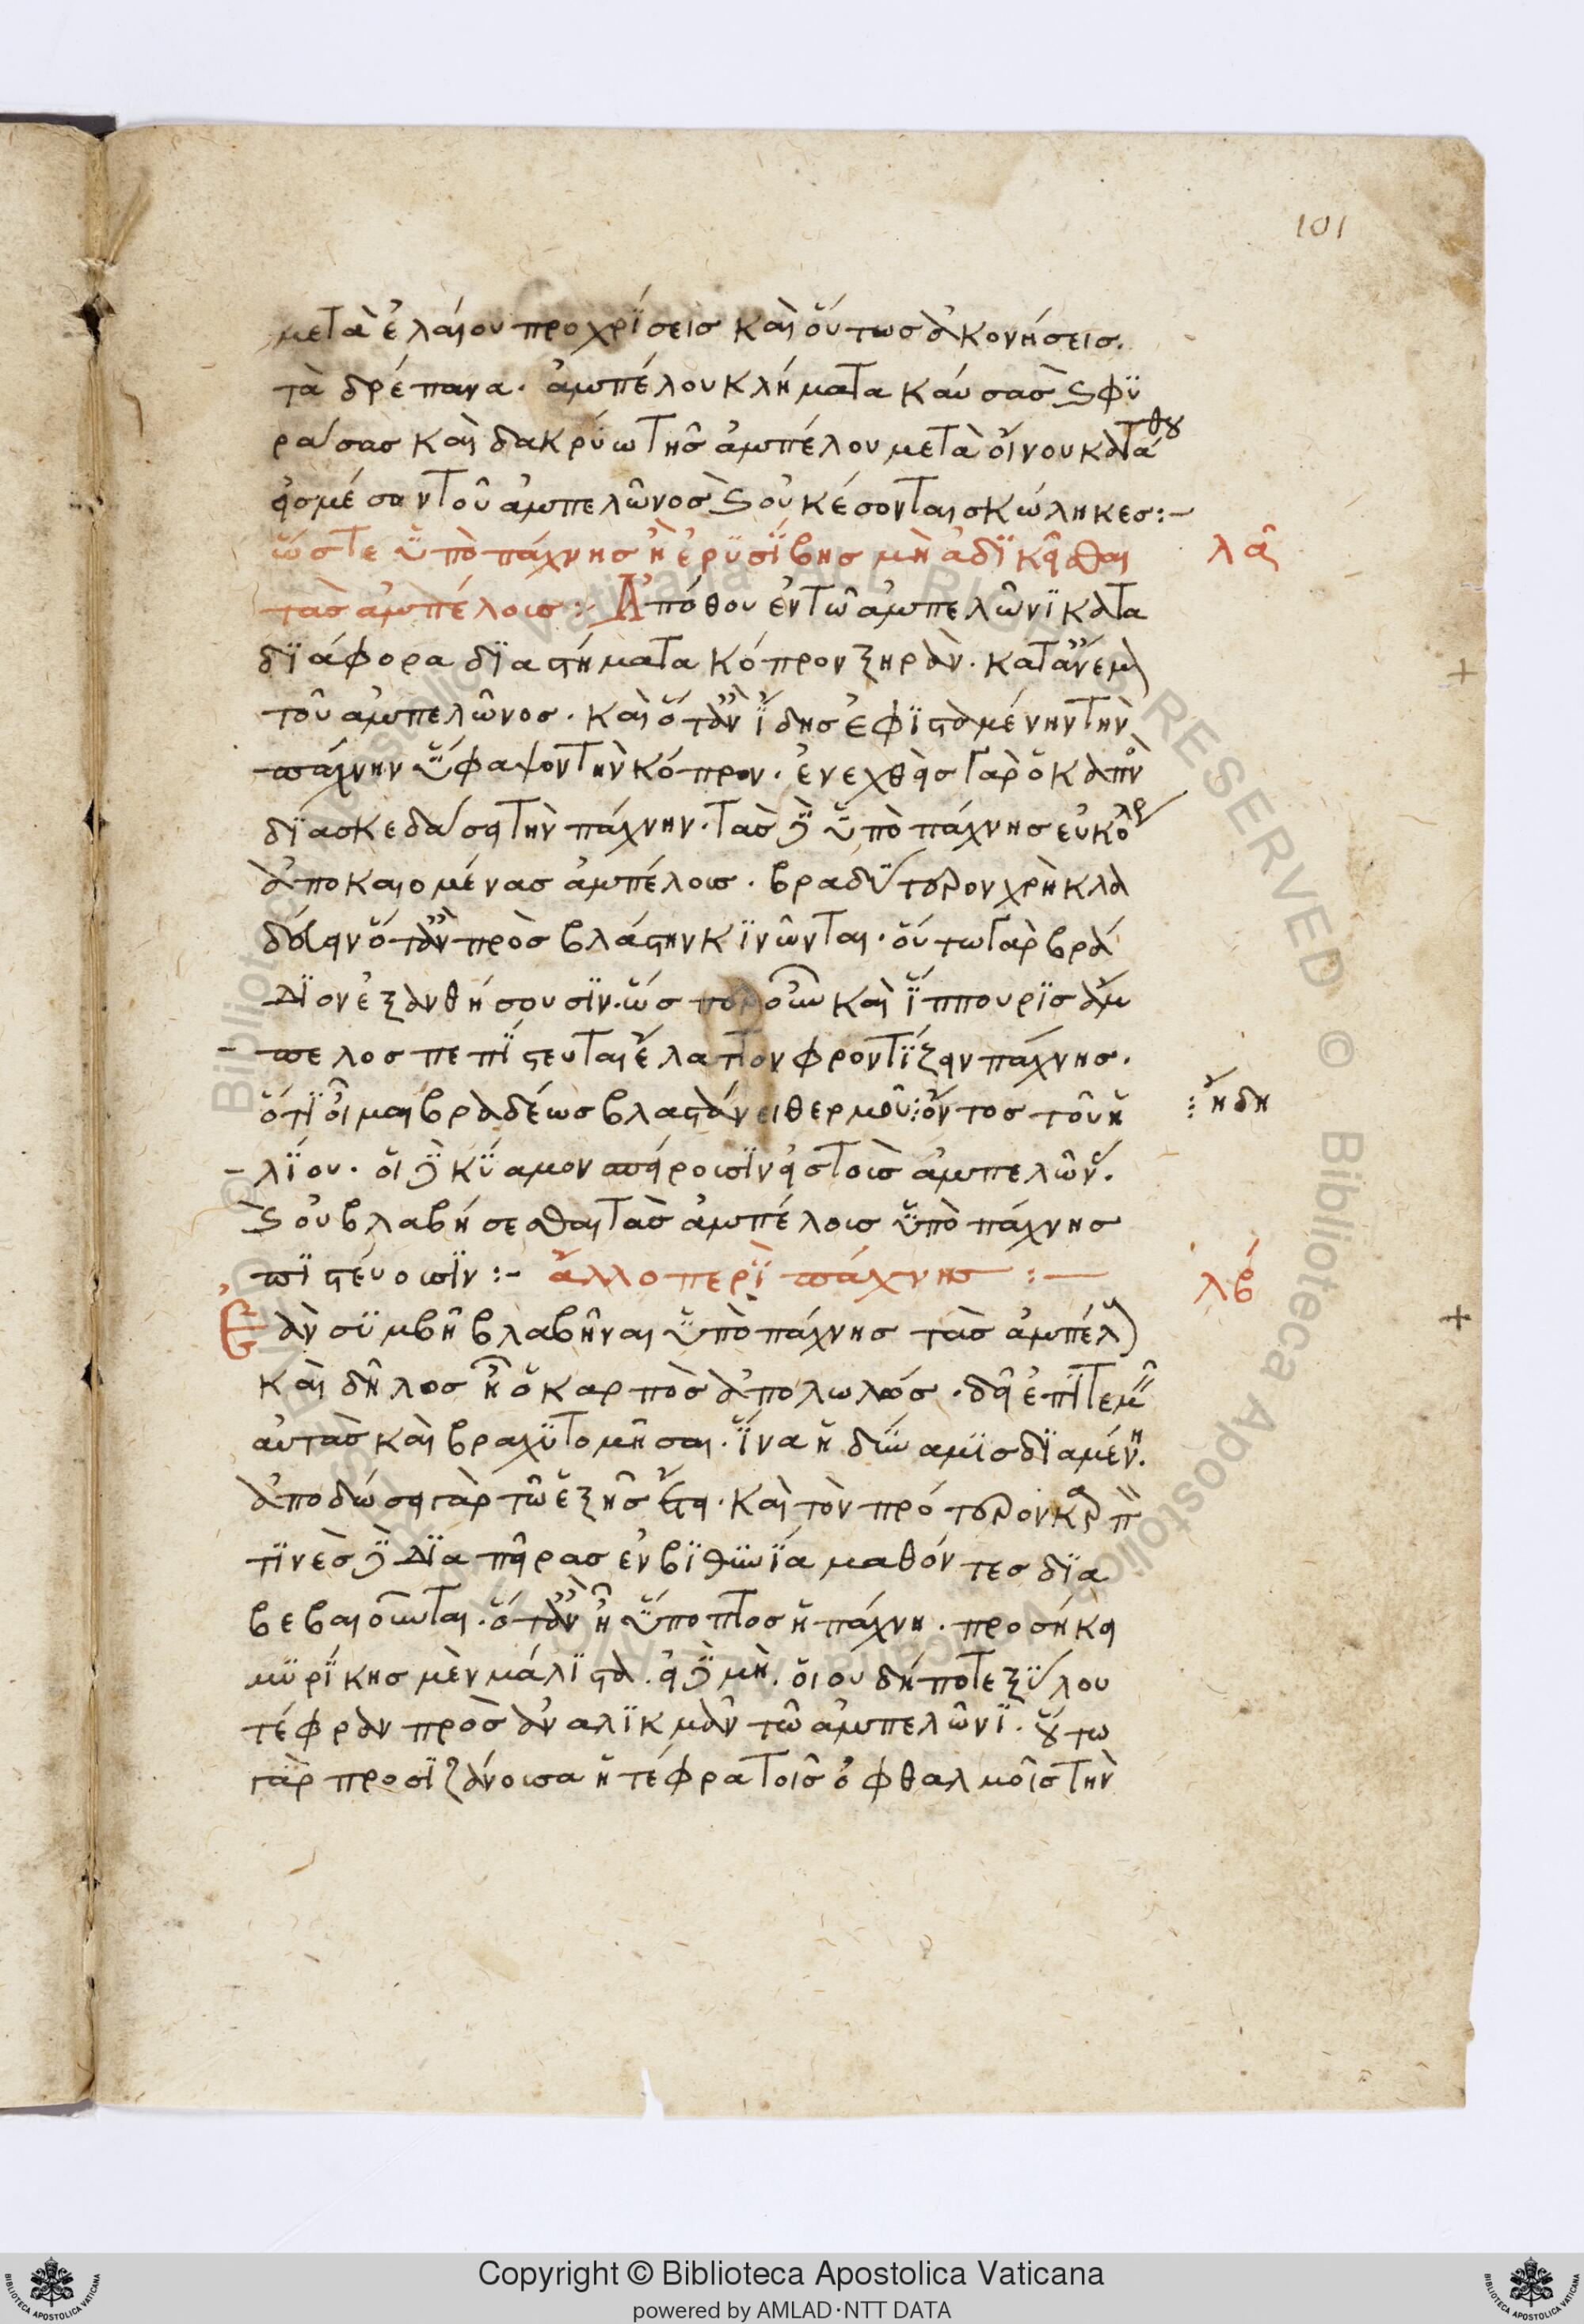 101
μετὰ ἐλαίου προχρίσεις καὶ οὕτως ἀκονήσεις
τὰ δρέπανα. ἀμπέλου κλήματα καύσας καὶ φυ
ράσας καὶ δακρύω τῆς ἀμπέλου μετὰ οἴνου κατάθου
εἰς μέσον τοῦ ἀμπελῶνος καὶ οὐκ έσονται σκώληκες :-
ὥστε ὑπὸ πάχνης ἢ ἐρυσίβης μὴ ἀδικεῖσθαι
λα
τὰς ἀμπέλους :- Ἀπόθου ἐν τῶ ἀμπελῶνι κατα
διάφορα διαστήματα κόπρον ξηρὰν. κατ' ἄνεμον
τοῦ ἀμπελῶνος. καὶ ὅταν ἴδης ἐφισταμένην τὴν
πάχνην ὕφαψον τὴν κόπρον. ἐνεχθεὶς γὰρ ὁ καπνὸς
διασκεδάσει τὴν πάχνην. τὰς δὲ ὑπὸ πάχνης εὐκόλως
ἀποκαιομένας ἀμπέλους. βραδύτερον χρὴ κλα
δεύειν ὅταν πρὸς βλάστην κινῶνται. οὕτω γὰρ βρά
διον ἐξανθήσουσιν. ὥσπερ οὖν καὶ ἵππουρις ἄμ
πελος πεπίστευται ἔλαττον φροντίζειν πάχνης.
ὅτι οἶμαι βραδέως βλαστάνει θερμοῦ ὄντος τοῦ ἡ
ἤδη
λίου. οἱ δὲ κύαμον σπείρουσιν εἰς τοὺς ἀμπελῶνας.
καὶ οὐ βλαβήσεσθαι τὰς ἀμπέλους ὑπὸ πάχνης
πιστεύουσιν :- ἄλλο περὶ πάχνης :-
λβ
Ἐὰν συμβῆ βλαβῆναι ὑπὸ πάχνης τὰς ἀμπέλους
καὶ δῆλος ἦ ὁ καρπὸς ἀπολωλώς. δεῖ ἐπιτεμεῖν
αὐτὰς καὶ βραχυτομῆσαι. ἵνα ἡ δύναμις διαμένη.
ἀποδώσει γὰρ τῶ ἑξῆς ἔτει. καὶ τὸν πρότερον καρπὸν
τινὲς δὲ διὰ πείρας ἐν βιθυνία μαθόντες δια
βεβαιοῦνται. ὅταν ἦ ὕποπτος ἡ πάχνη. προσήκει
μυρίκης μὲν μάλιστα. εἰ δὲ μὴ. οἱουδήποτε ξύλου
τέφραν προσαναλικμᾶν τῶ ἀμπελῶνι. οὕτω
γὰρ προσιζάνουσα ἡ τέφρα τοῖς ὀφθαλμοῖς τὴν
Copyright © Biblioteca Apostolica Vaticana
powered by AMLAD·NTT DATA